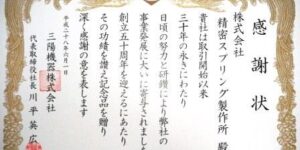 感謝状
株式会社
精密スプリング製作所 殿
貴社は取引開始以来
三十年の永きにわたり
日頃の努力と研鑽により弊社の
事業発展に大いに寄与されました
創立五十周年を迎えるにあたり
その功績を讃え記念品を贈り
深く感謝の意を表します
平成二十八年六月一日
三陽機器株式会社
代表取締役社長 川平英広